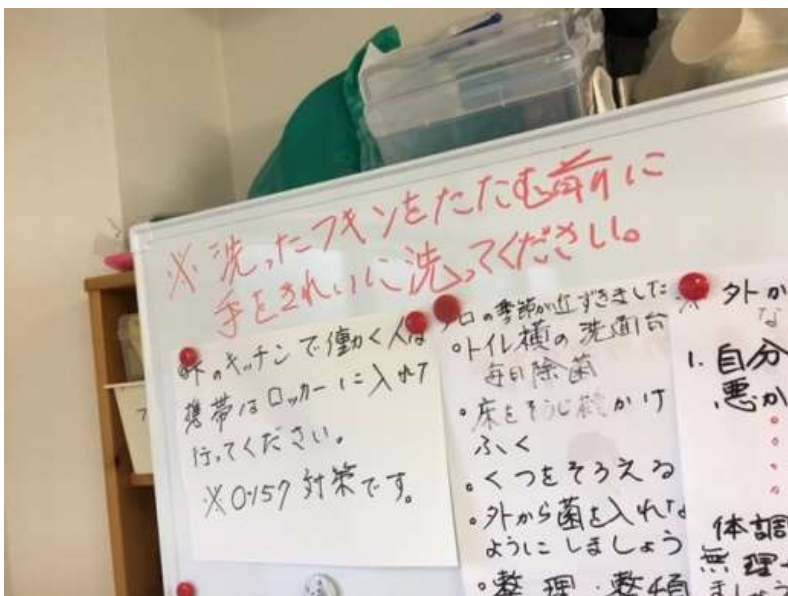 ※洗ったフキンをたたむ前に
手をきれいに洗ってください。
下のキッチンで働く人は
携帯はロッカーに入れて
行ってください。
※O157対策です。
ロの季節が近ずきました
○トイレ横の洗面台
毎日除菌
・床をそうじ機かけ
ふく
・くつをそろえる
・外から菌を入れな
ようにしましょう
・整理・整頓
※外か
な
1. 自分
悪か
体調
無理
ましょう